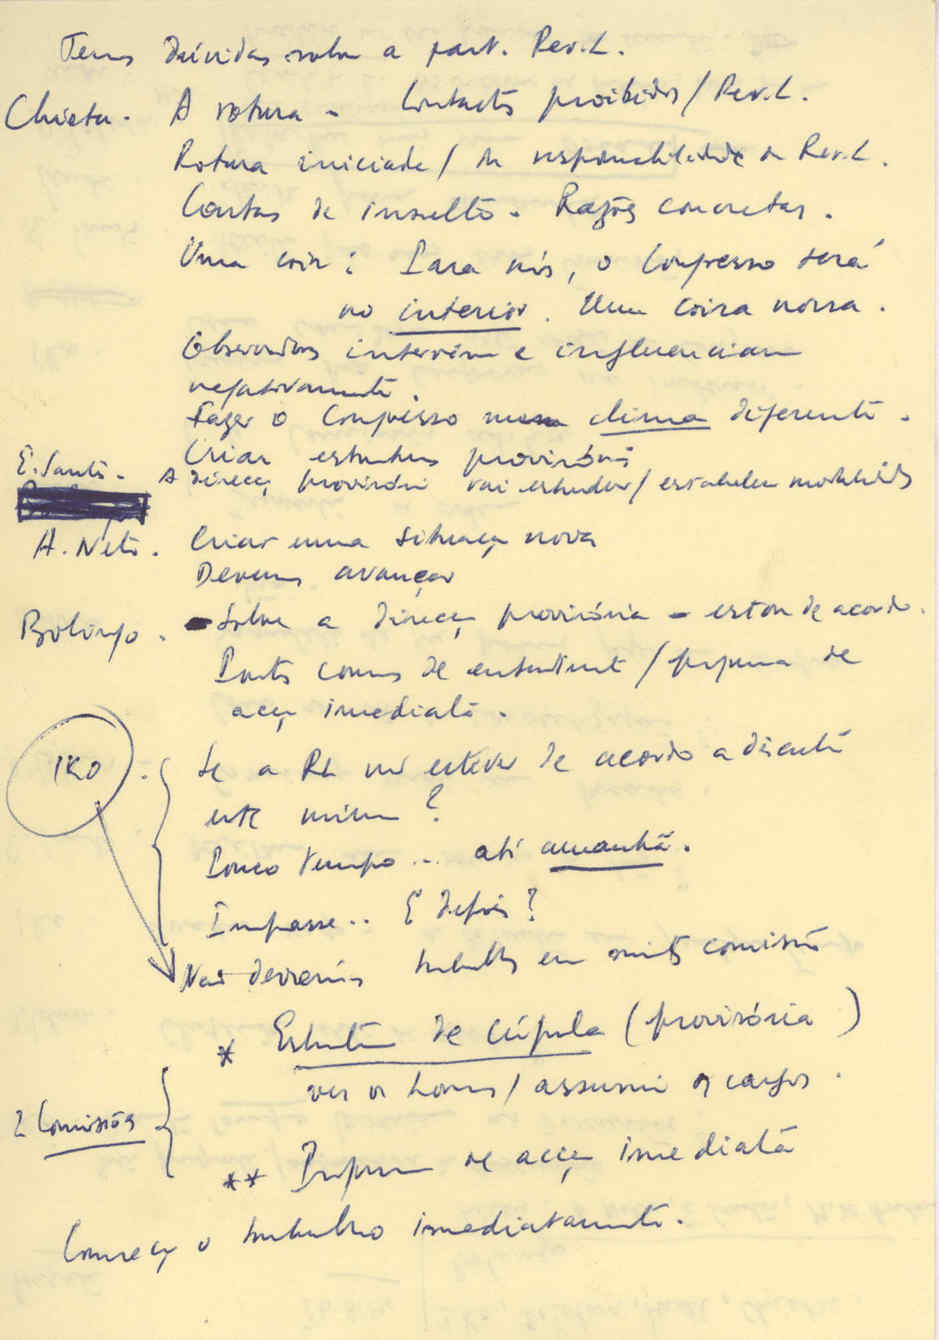 Temos dúvidas sobre a part. Rev. L.
Chieta. A rotura - Contactos proibidos / Rev. L.
Rotura iniciada / da responsabilidade da Rev. L.
Contas de insulto. Razões concretas.
Uma coisa: Para nós, o Congresso será
no interior. Uma coisa nossa.
Observadores intervêm e influenciam
negativamente.
Fazer o Congresso num clima diferente.
Criar estruturas provisórias
E. Santos. A direcç provisória vai estudar / estabelecer modalidades
A. Neto. Criar uma situaç nova
Devemos avançar
Bolingo. - Sobre a direcç provisória - estou de acordo.
Pontos comuns de / programa de
acç imediata.
IKO. Se a RL não estiver de acordo a discutir
este mínimo?
Pouco tempo... até amanhã.
Impasse.. E depois?
Não deveríamos trabalhar em muitas comissões
* Estrutura de Cúpula (provisória)
ver os homens / assumir os cargos.
2 Comissões
** Programa de acç imediata
Começ o trabalho imediatamente.